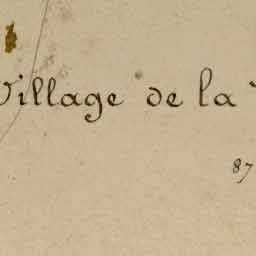 Village de la
87